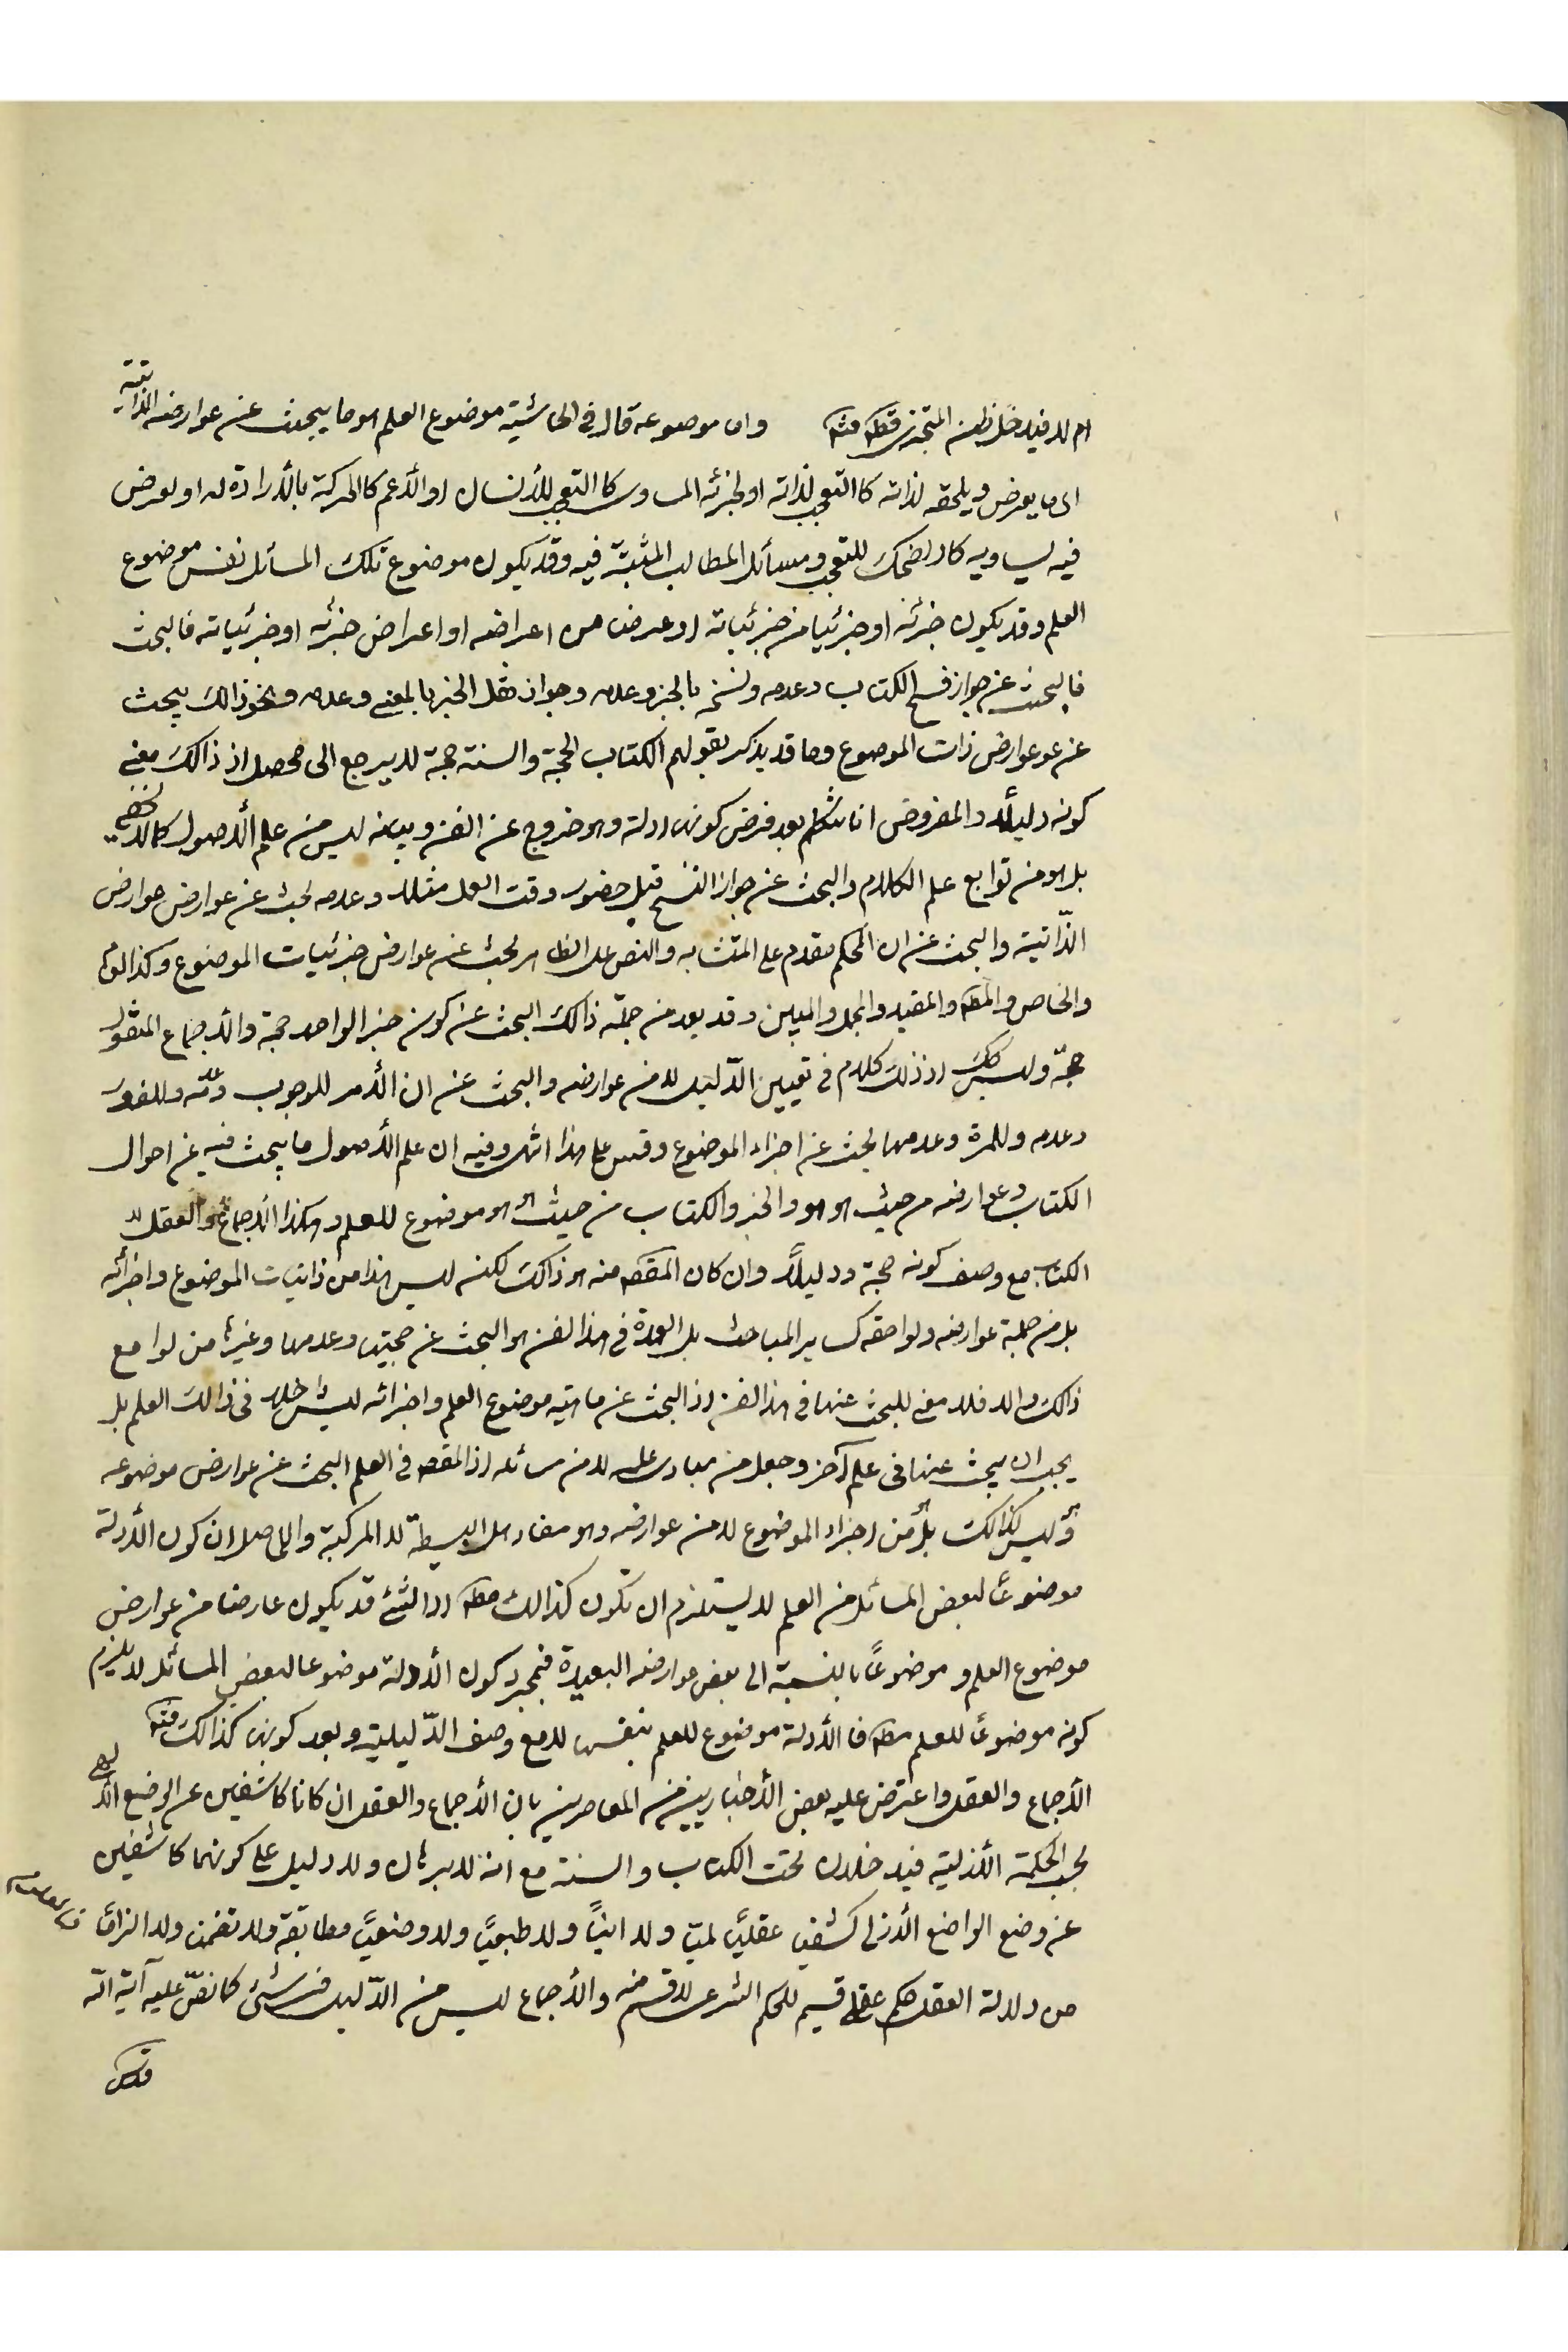 ام لا فيدخل ظن المتجزى قطعه منه واما موضوعه قال فى الحاشية موضوع العلم هو ما يبحث عن عوارضه الذاتية
اى ما يعرض ويلحقه لذاته كالتعجب لذاته او لجزئه المساوى كالتعجب للأنسان او الأعم كالحركة بالأرادة له او لعرض
فيه يساويه كالضحك للتعجب ومسائل المطالب المثبتة فيه وقد يكون موضوع تلك المسائل نفس موضوع
العلم وقد يكون جزئه او جزئيا من جزئياته او عرضا من اعراضه او اعراض جزئه او جزئياته فالبحث
فالبحث عن جواز نسخ الكتاب وعدمه ونسخه بالخبر وعدمه وجواز نقل الخبر بالمعنى وعدمه ونحو ذالك يبحث
عن عوعوارض ذات الموضوع وما قد يذكر بقولهم الكتاب الحجة والسنة حجة لا يرجع الى محصل اذ ذالك معنى
كونه دليلاً والمفروض انا نتكلم بعد فرض كونها ادلة وهو خروج عن الفن وبيانه ليس من علم الأصول كما لا يخفى
بل هو من توابع علم الكلام والبحث عن جواز النسخ قبل حضور وقت العمل مثلا وعدمه بحث عن عوارض عوارض
الذّاتية والبحث عن ان المحكم مقدم على المتشابه والنص على الظاهر بحث عن عوارض جزئيات الموضوع وكذا العام
والخاص والمطلق والمقيد والمجمل والمبين وقد يعد من جملة ذالك البحث عن كون خبر الواحد حجة والأجماع المنقول
حجّة وليس كك اذ ذلك كلام فى تعيين الدّليل لا من عوارضه والبحث عن ان الأمر للوجوب وعدمه وللفور
وعدمه وللمرة وعدمها بحث عن اجزاء الموضوع وقس على هذا انتهى وفيه ان علم الأصول ما يبحث فيه عن احوال
الكتاب وعوارضه من حيث هو هو والخبر والكتاب من حيث هو هو موضوع للعلم وهكذا الأجماع والعقل لا
الكتاب مع وصف كونه حجة ودليلاً وان كان المقصد منه هو ذالك لكنه ليس هذا من ذاتيات الموضوع واجزائه
بل من جملة عوارضه ولواحقه كساير المباحث بل العمدة فى هذا الفن هو البحث عن حجيتها وعدمها وغيرها من لوامع
ذالك والا فلا معنى للبحث عنها فى هذا الفن اذ البحث عن ماهية موضوع العلم واجزائه ليس داخلا فى ذالك العلم بل
يجب ان يبحث عنها فى علم آخر وجعل من مبادى علمه لا من مسائله اذ المقصد فى العلم البحث عن عوارض موضوعه
وليس كذالك بل هو من اجزاء الموضوع لا من عوارضه وهو مفاد هل البسيطة لا المركبة والحاصل ان كون الأدلة
موضوعاً لبعض المسائل من العلم لا يستلزم ان تكون كذالك مطلقا اذ الشئ قد يكون عارضا من عوارض
موضوع العلم وموضوعاً بالنسبة الى بعض عوارضه البعيدة فبمجرد كون الأدلة موضوعا لبعض المسائل لا يلزم
كونه موضوعاً للعلم مطلقا فالأدلة موضوع للعلم بنفسها لا مع وصف الدّليلية وبعد كونها كذالك منه
الأجماع والعقل واعترض عليه بعض الأخباريين من المعاصرين بان الأجماع والعقل ان كانا كاشفين عن الوضع الألهى
بحسب الحكمة الأزلية فيدخلان تحت الكتاب والسنة مع انه لا برهان ولا دليل على كونهما كاشفين
عن وضع الواضع الأزلى كشفا عقليّا لميّا ولا انيّاً ولا طبعيّاً ولا وضعيّاً مطابقة ولا تضمنا ولا التزاما
من دلالة العقل حكم عقلى قسيم للحكم الشرعى لا قسم منه والأجماع ليس من الدّليل فى شئ كما نصّ عليه آية الله